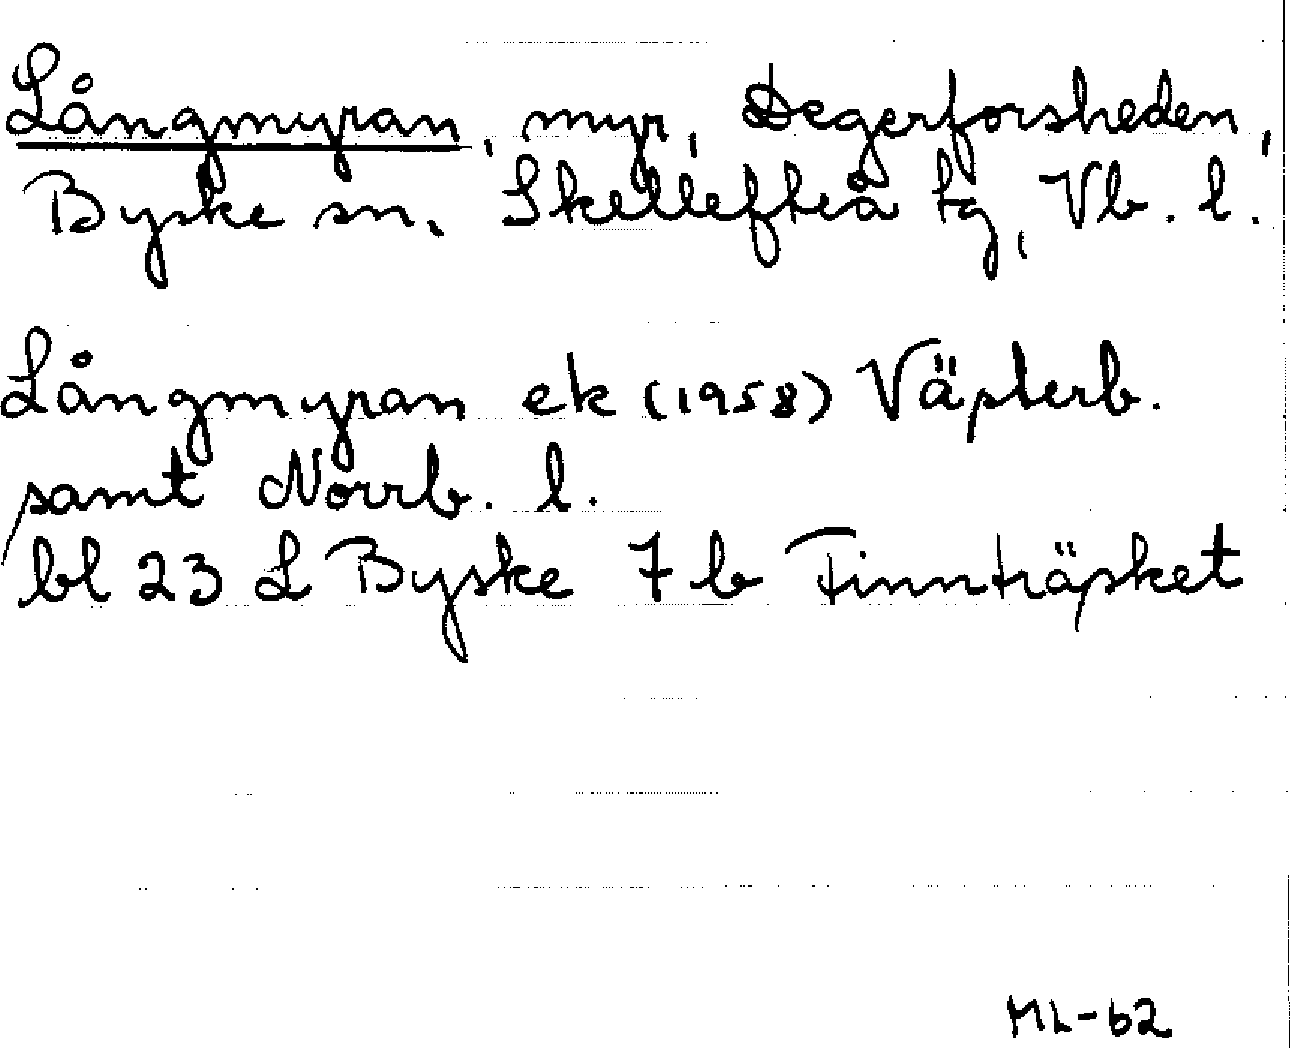 Långmyran, myr, Degerforsheden,
Byske sn. Skellefteå tg, Vb. l.
Långmyran ek (1958) Västerb.
samt Norrb. l.
bl 23 L Byske 7 b Finnträsket
ML-62